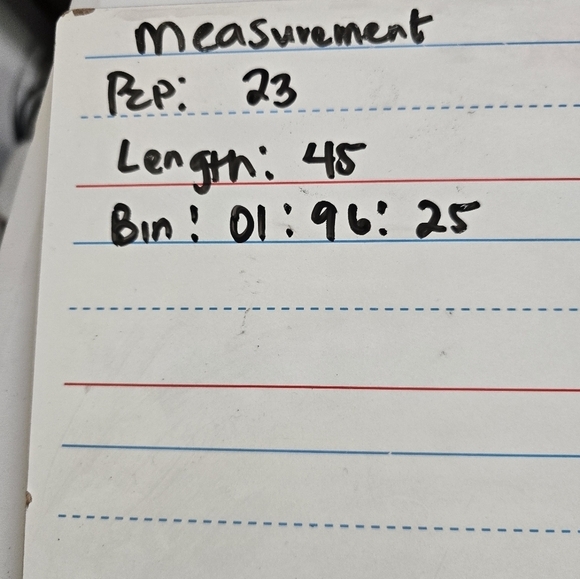 Measurement
PEP: 23
Length: 45
Bin: 01:96:25